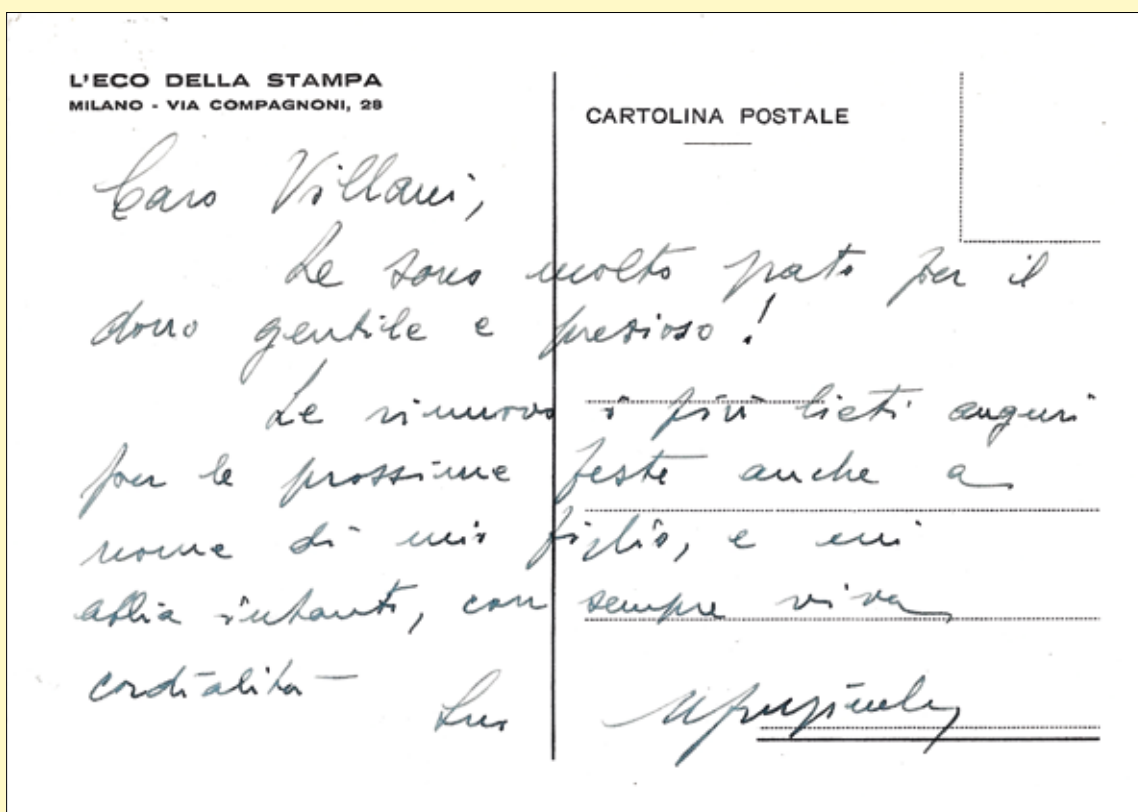 L'ECO DELLA STAMPA
MILANO - VIA COMPAGNONI, 28
CARTOLINA POSTALE
Caro Villani,
Le sono molto grato per il
dono gentile e prezioso!
Le rinnovo i più lieti auguri
per le prossime feste anche a
nome di mio figlio, e mi
abbia intanto, con sempre viva
cordialità
Suo